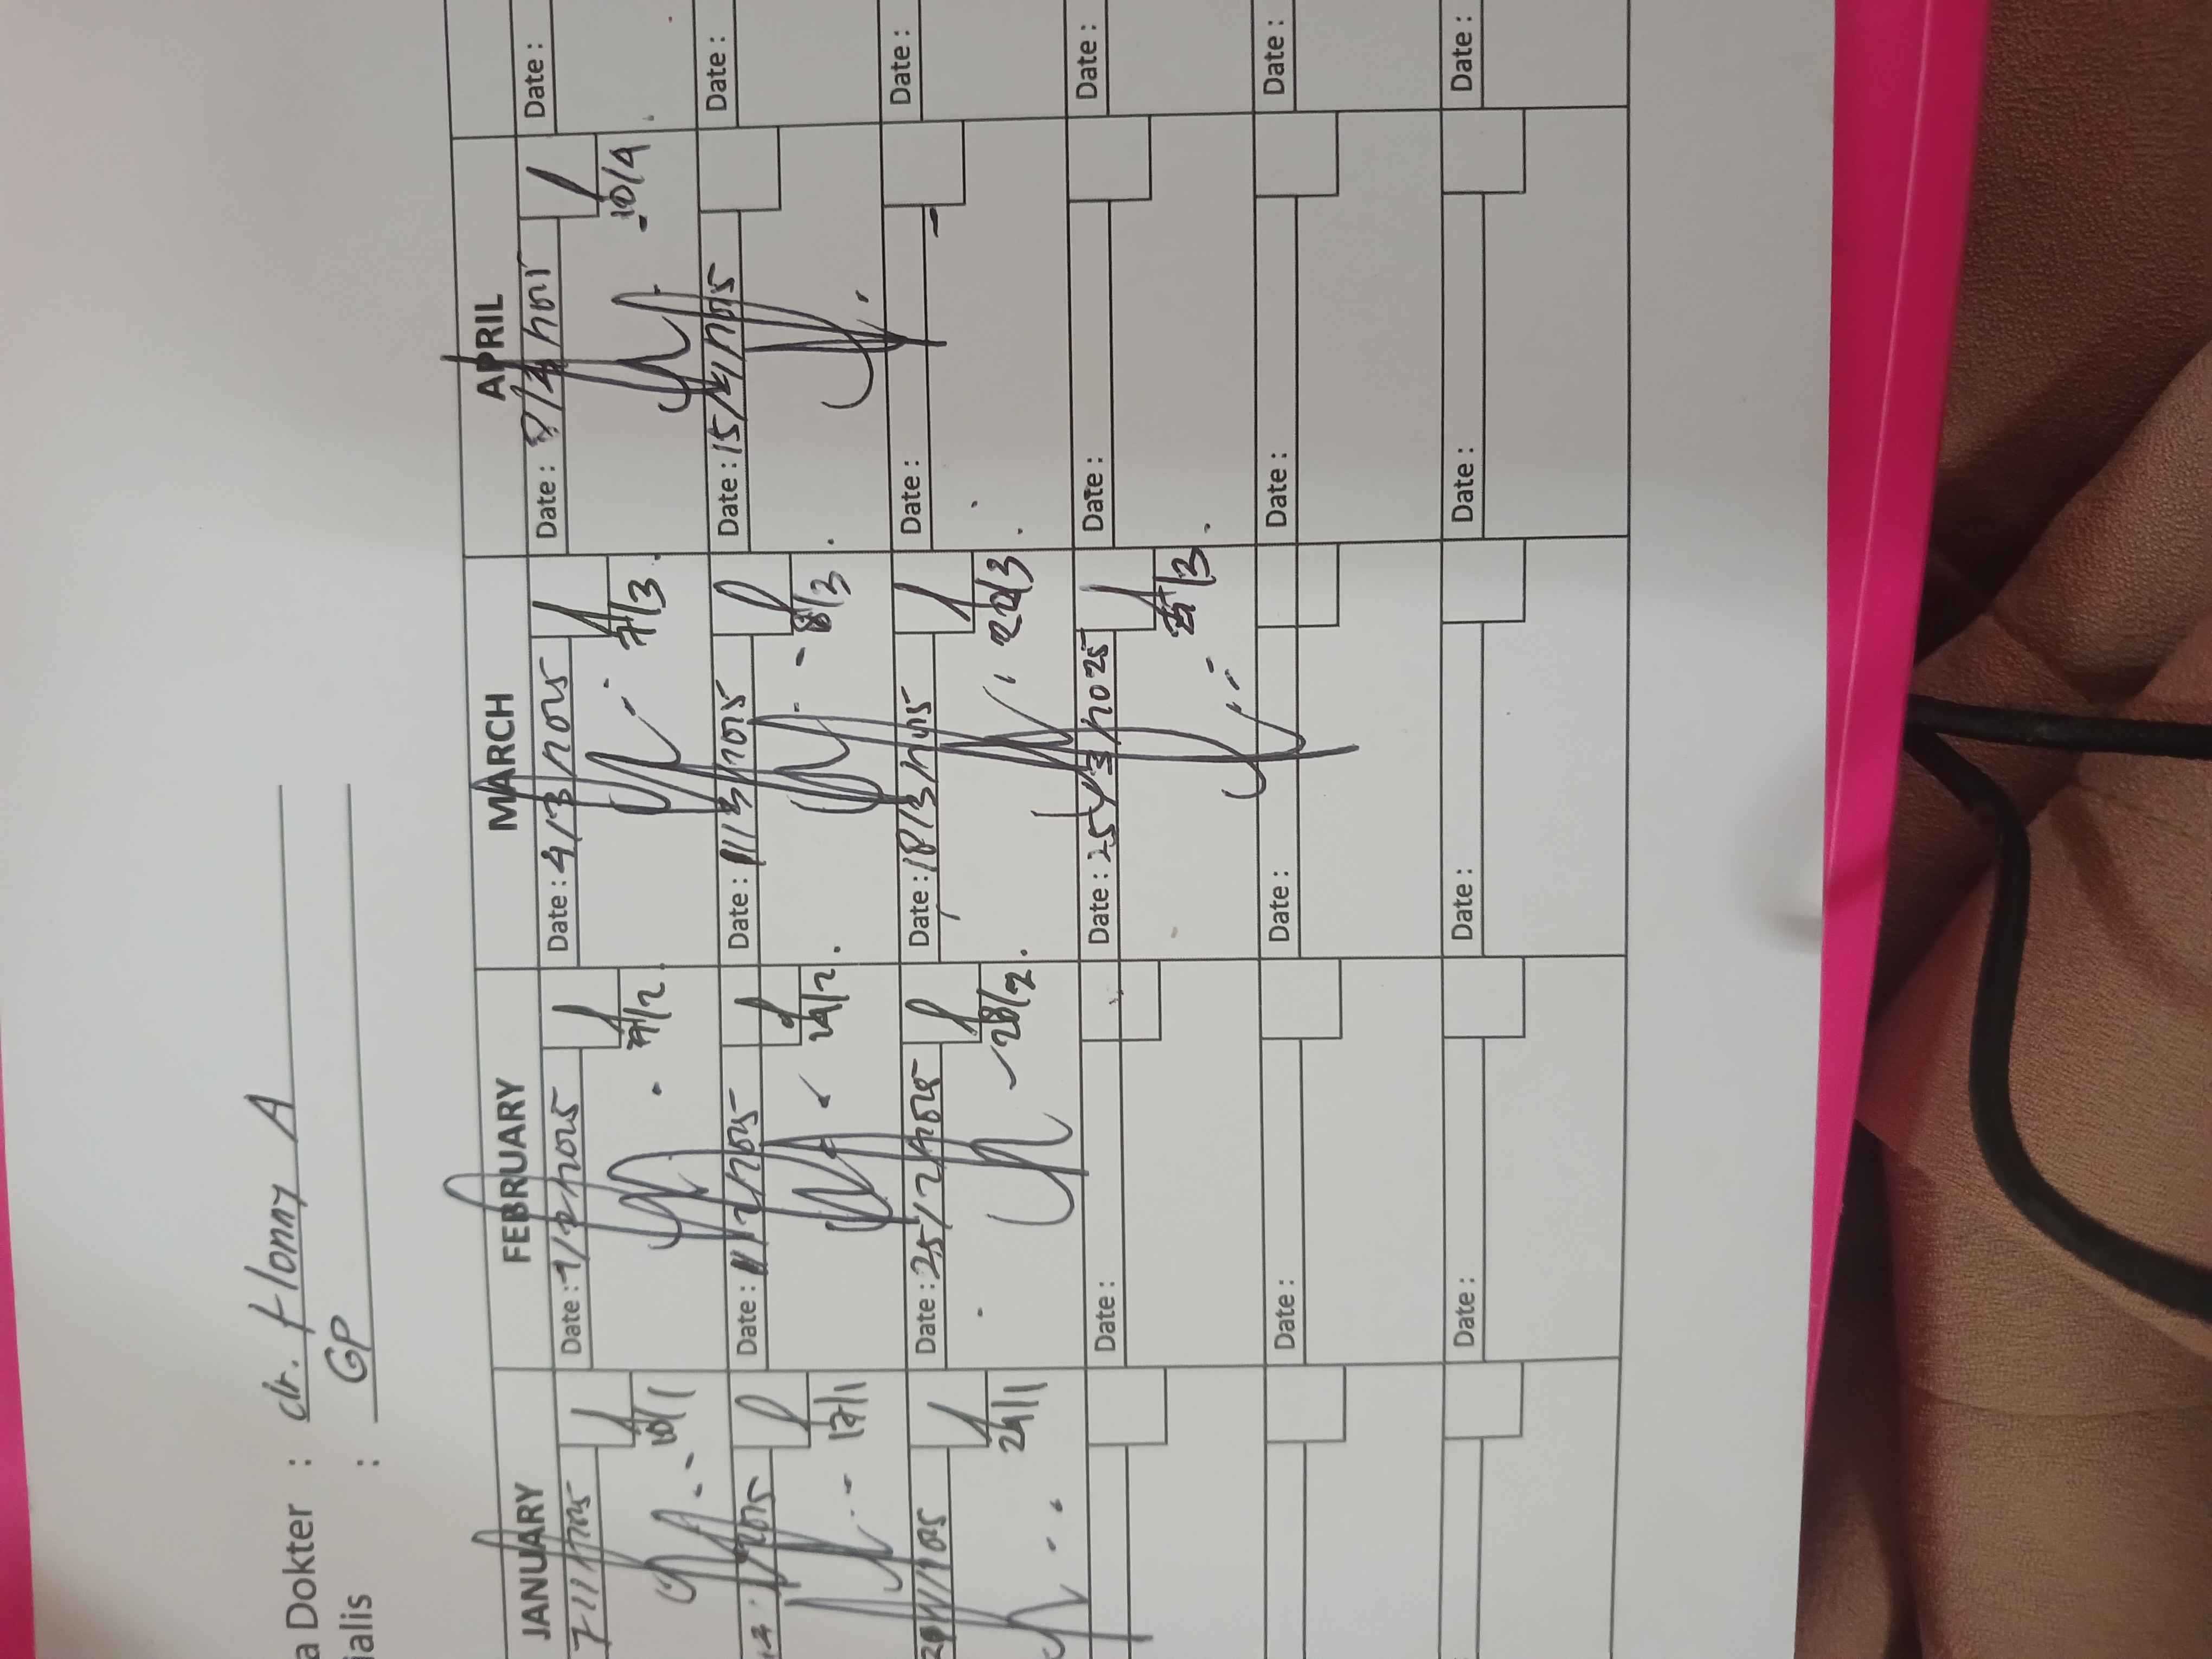 a Dokter : dr. Honny A
ialis : GP
JANUARY FEBRUARY MARCH APRIL
7/1/2025 Date : 7/2/2025 Date : 4/3/2025 Date : 8/4/2025 Date :
10/1 7/2 7/3 10/4
Date : 11/2/2025 Date : 11/3/2025 Date : 15/4/2025 Date :
17/1 14/2 /3
Date : 25/2/2025 Date : 18/3/2025 Date : Date :
24/1 28/2 20/3
Date : Date : 25/3/2025 Date : Date :
/3
Date : Date : Date : Date :
Date : Date : Date : Date :